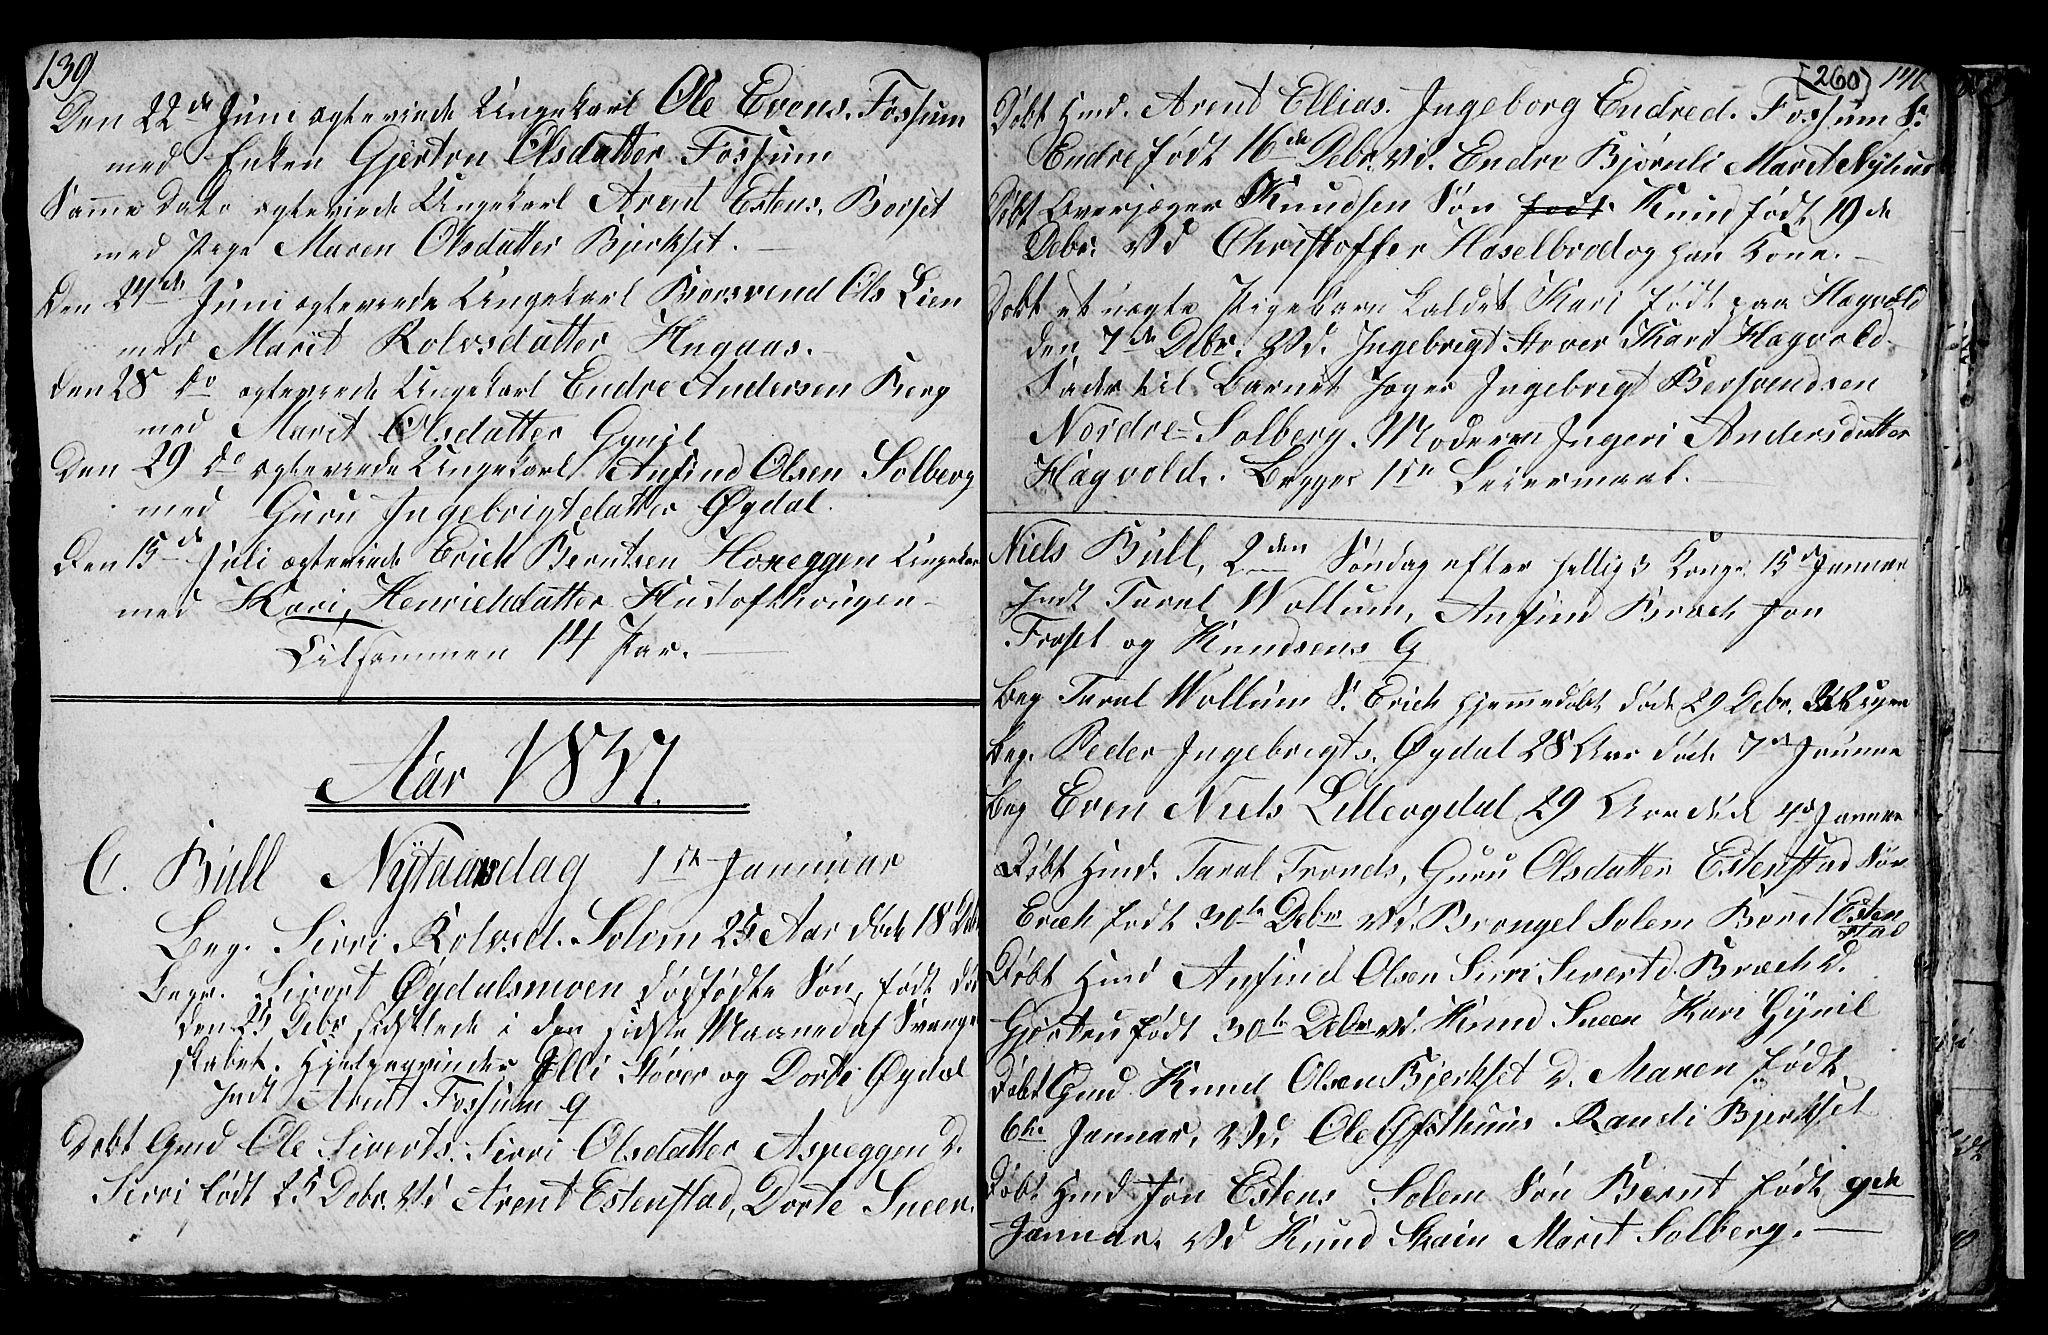 139
Den 22de Juni egteviede Ungekarl Ole Evens. Fossum
med Enken Gjertru Olsdatter Fossum
Samme Dato egteviede Ungekarl Arent Estens. Borset
med Pige Maren Olsdatter Bjerkset.
Den 24de Juni egteviede Ungekarl Bersvend Ols Lien
med Marit Rolvsdatter Hugaas.
Den 28 do egteviede Ungekarl Endre Andersen Berg
med Marit Olsdatter Gynil
Den 29 do egteviede Ungekarl Anfind Olsen Solberg
med Guru Ingebrigtdatter Øydal.
Den 15de Juli egteviede Erich Berntsen Honeggen
med Kari Henrichdatter Hustofthougen
Tilsammen 14 Par.
Aar 1837.
C. Bull Nytaarsdag 1ste Januar
Beg. Sirri Rolvsd. Solem 25 Aar døde 18
Begr. Sivert Øydalsmoen dødfødte Søn, født
den 25 Debr sidstlede i den sidste Maaned af Svanger
skabet. Hjelpeqvinder Elli Støver og Dorti Øydal
Indt Arent Fossum q
Døbt Gmd Ole Siverts. Sirri Olsdatter Aspeggen D.
Sirri født 25 Debr. Vd Arent Estenstad, Dorte Sneen.
[260] 140
Døbt Hmd. Arent Ellias. Ingeborg Endred. Fossum S.
Endre født 16de Debr. Vd. Endre Bjørnli Marit Nyhuus
Døbt Overjæger Knudsen Søn født Knud født 19de
Debr. Vd Christoffer Haselbrod og han Kone.
Døbt et uegte Pigebarn kaldet Kari født paa Hagvold
den 7de Debr. Vd. Ingebrigt Støver Kari Hagvold
Fader til Barnet Jæger Ingebrigt Bersvendsen
Nordre Solberg. Moderen Ingeri Andersdatter
Hagvold. Begges 1ste Leiermaal.
Niels Bull, 2den Søndag efter hellig 3 Konge 15d Januar
Indt Taral Wollum, Anfind Bræch Jon
Froset og Knudsens q
Beg Taral Wollum S. Erich hjemmedøbt døde 29 Debr. Uger
Beg. Peder Ingebrigts. Øydal 28 Aar døde 7d Januar
Beg Even Niels Lilleøgdal 29 Aar død 4d Januar
Døbt Hmd. Taral Tronds, Guru Olsdatter Estenstad Søn
Erich født 30te Debr Vd. Brongel Solem Berit Esten
stad
Døbt Hmd Anfind Olsen Sirri Sivertd. Bræch D.
Gjertru født 30te Debr Vd. Knud Sneen Kari Gynil
Døbt Gmd Knud Olsen Bjerkset D. Maren født
6te Januar, Vd. Ole Østhuus Randi Bjerkset
Døbt Hmd Jon Estens Solem Søn Bernt født 9de
Januar. Vd Knud Skain Marit Solberg.